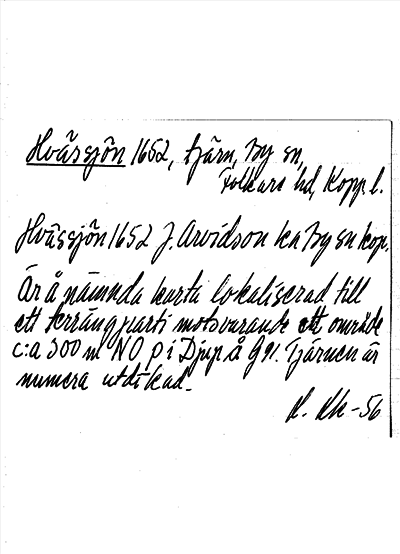 Hvässjön 1652, tjärn, By sn,
Folkare hd, Kopp. l.
Hvässjön 1652 J. Arvidson ka By sn kop.
Är å nämnda karta lokaliserad till
ett terrängparti motsvarande ett område
c:a 300 m NO p i Djup å G 91. Tjärnen är
numera utdikad.
R. Kk -56